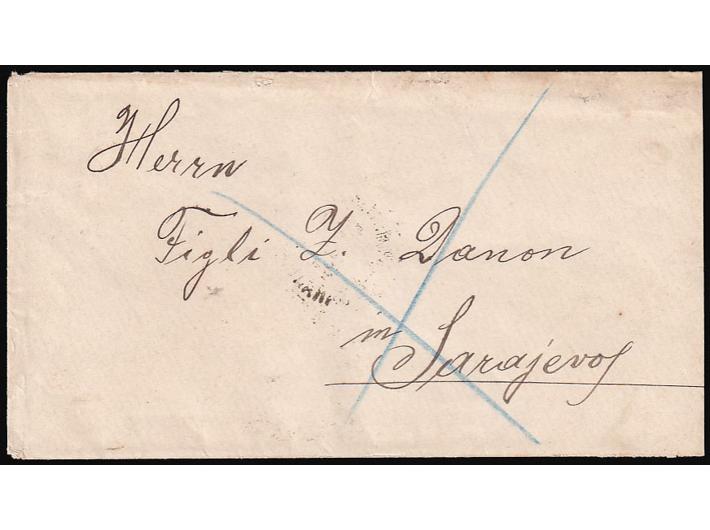 Herrn
Figli Z. Danon
in
Sarajevo